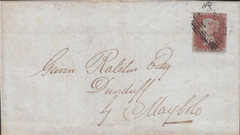 Gavin Ralston Esq
Dunduff
by Maybole